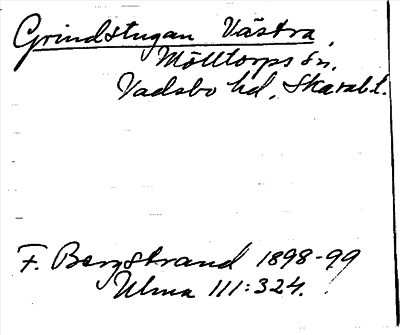 Grindstugan Västra,
Mölltorps sn.
Vadsbo hd. Skarab.l.
F. Bergstrand 1898-99
Ulma 111:324.